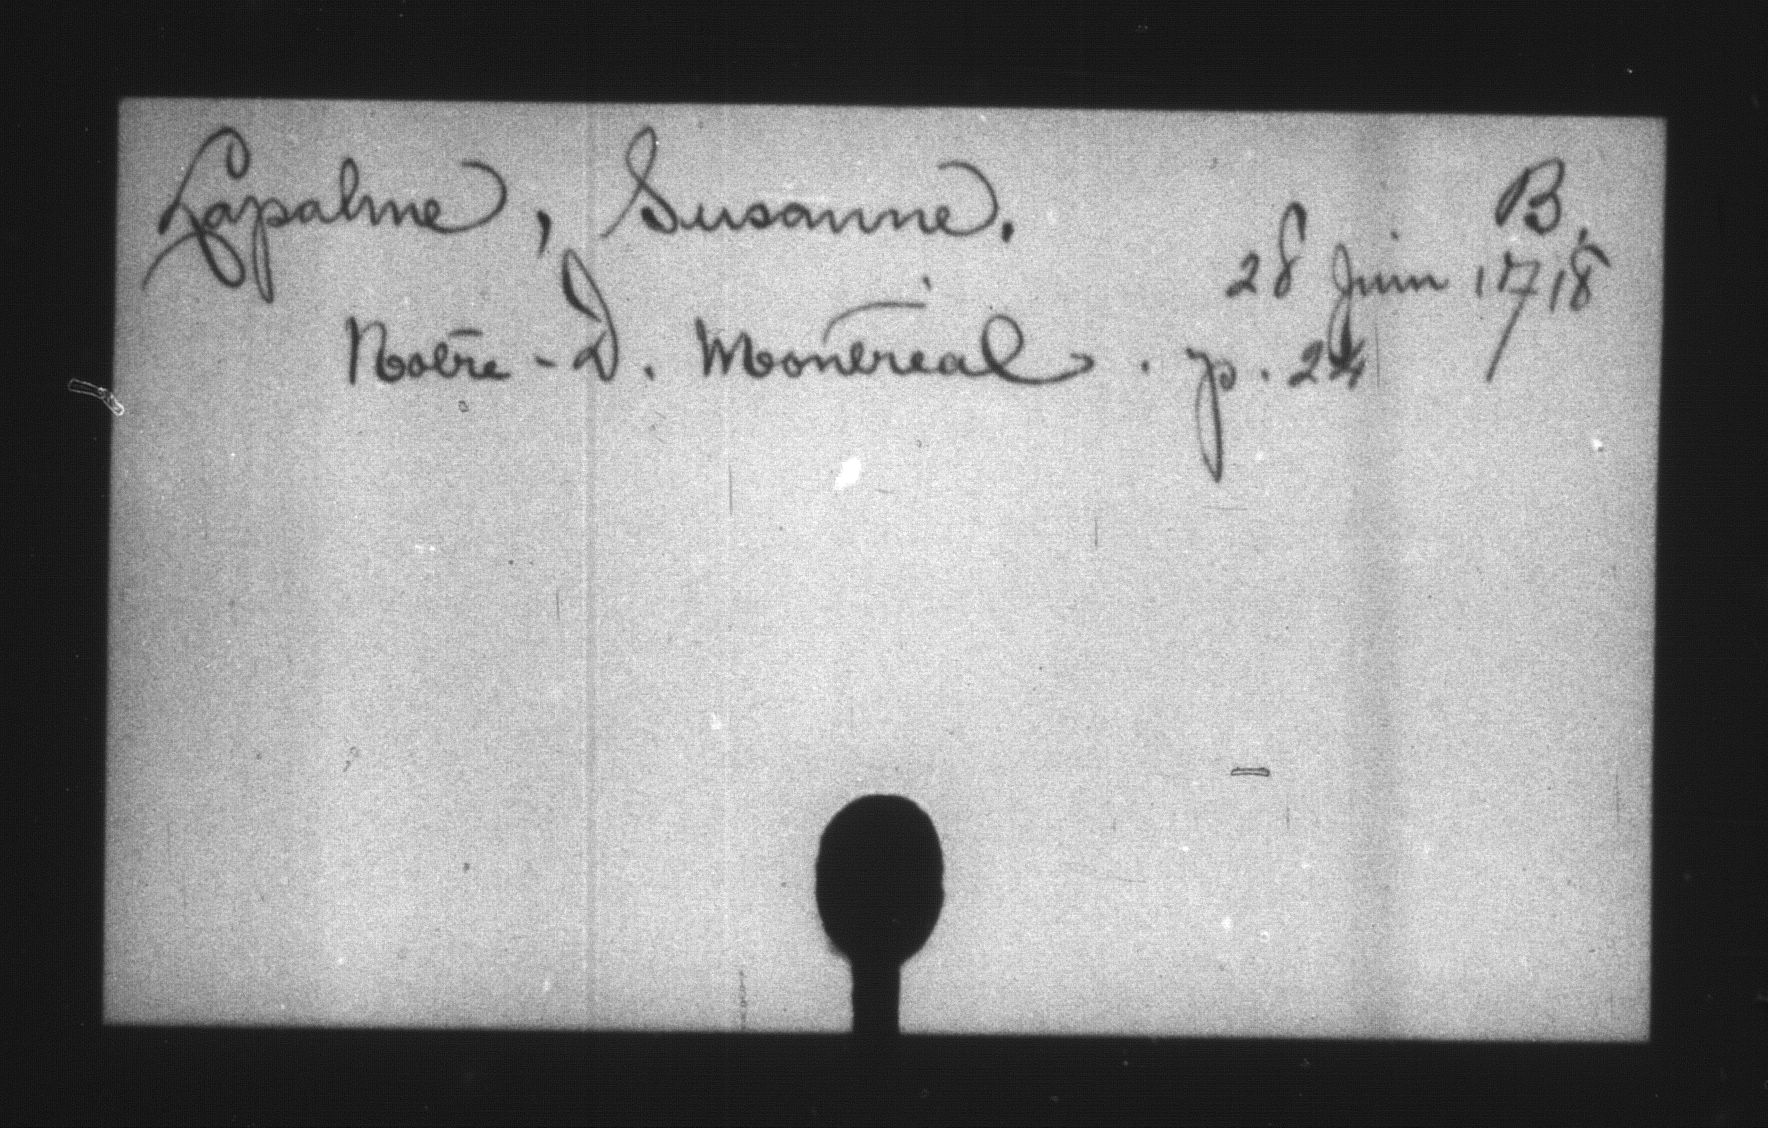 Lapalme, Susanne. B.
28 Juin 1718
Notre-D. Montréal. p. 24